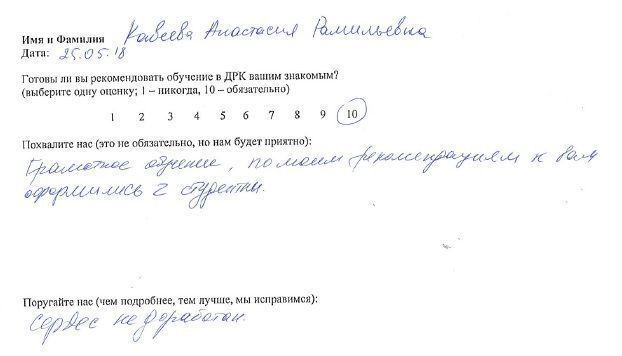 Имя и Фамилия Кавеева Анастасия Рамильевна
Дата: 25.05.18
Готовы ли вы рекомендовать обучение в ДРК вашим знакомым?
(выберите одну оценку; 1 – никогда, 10 – обязательно)
1 2 3 4 5 6 7 8 9 10
Похвалите нас (это не обязательно, но нам будет приятно):
Грамотное обучение, по моим рекомендациям к вам
оформились 2 студенты.
Поругайте нас (чем подробнее, тем лучше, мы исправимся):
Сервес не доработан.